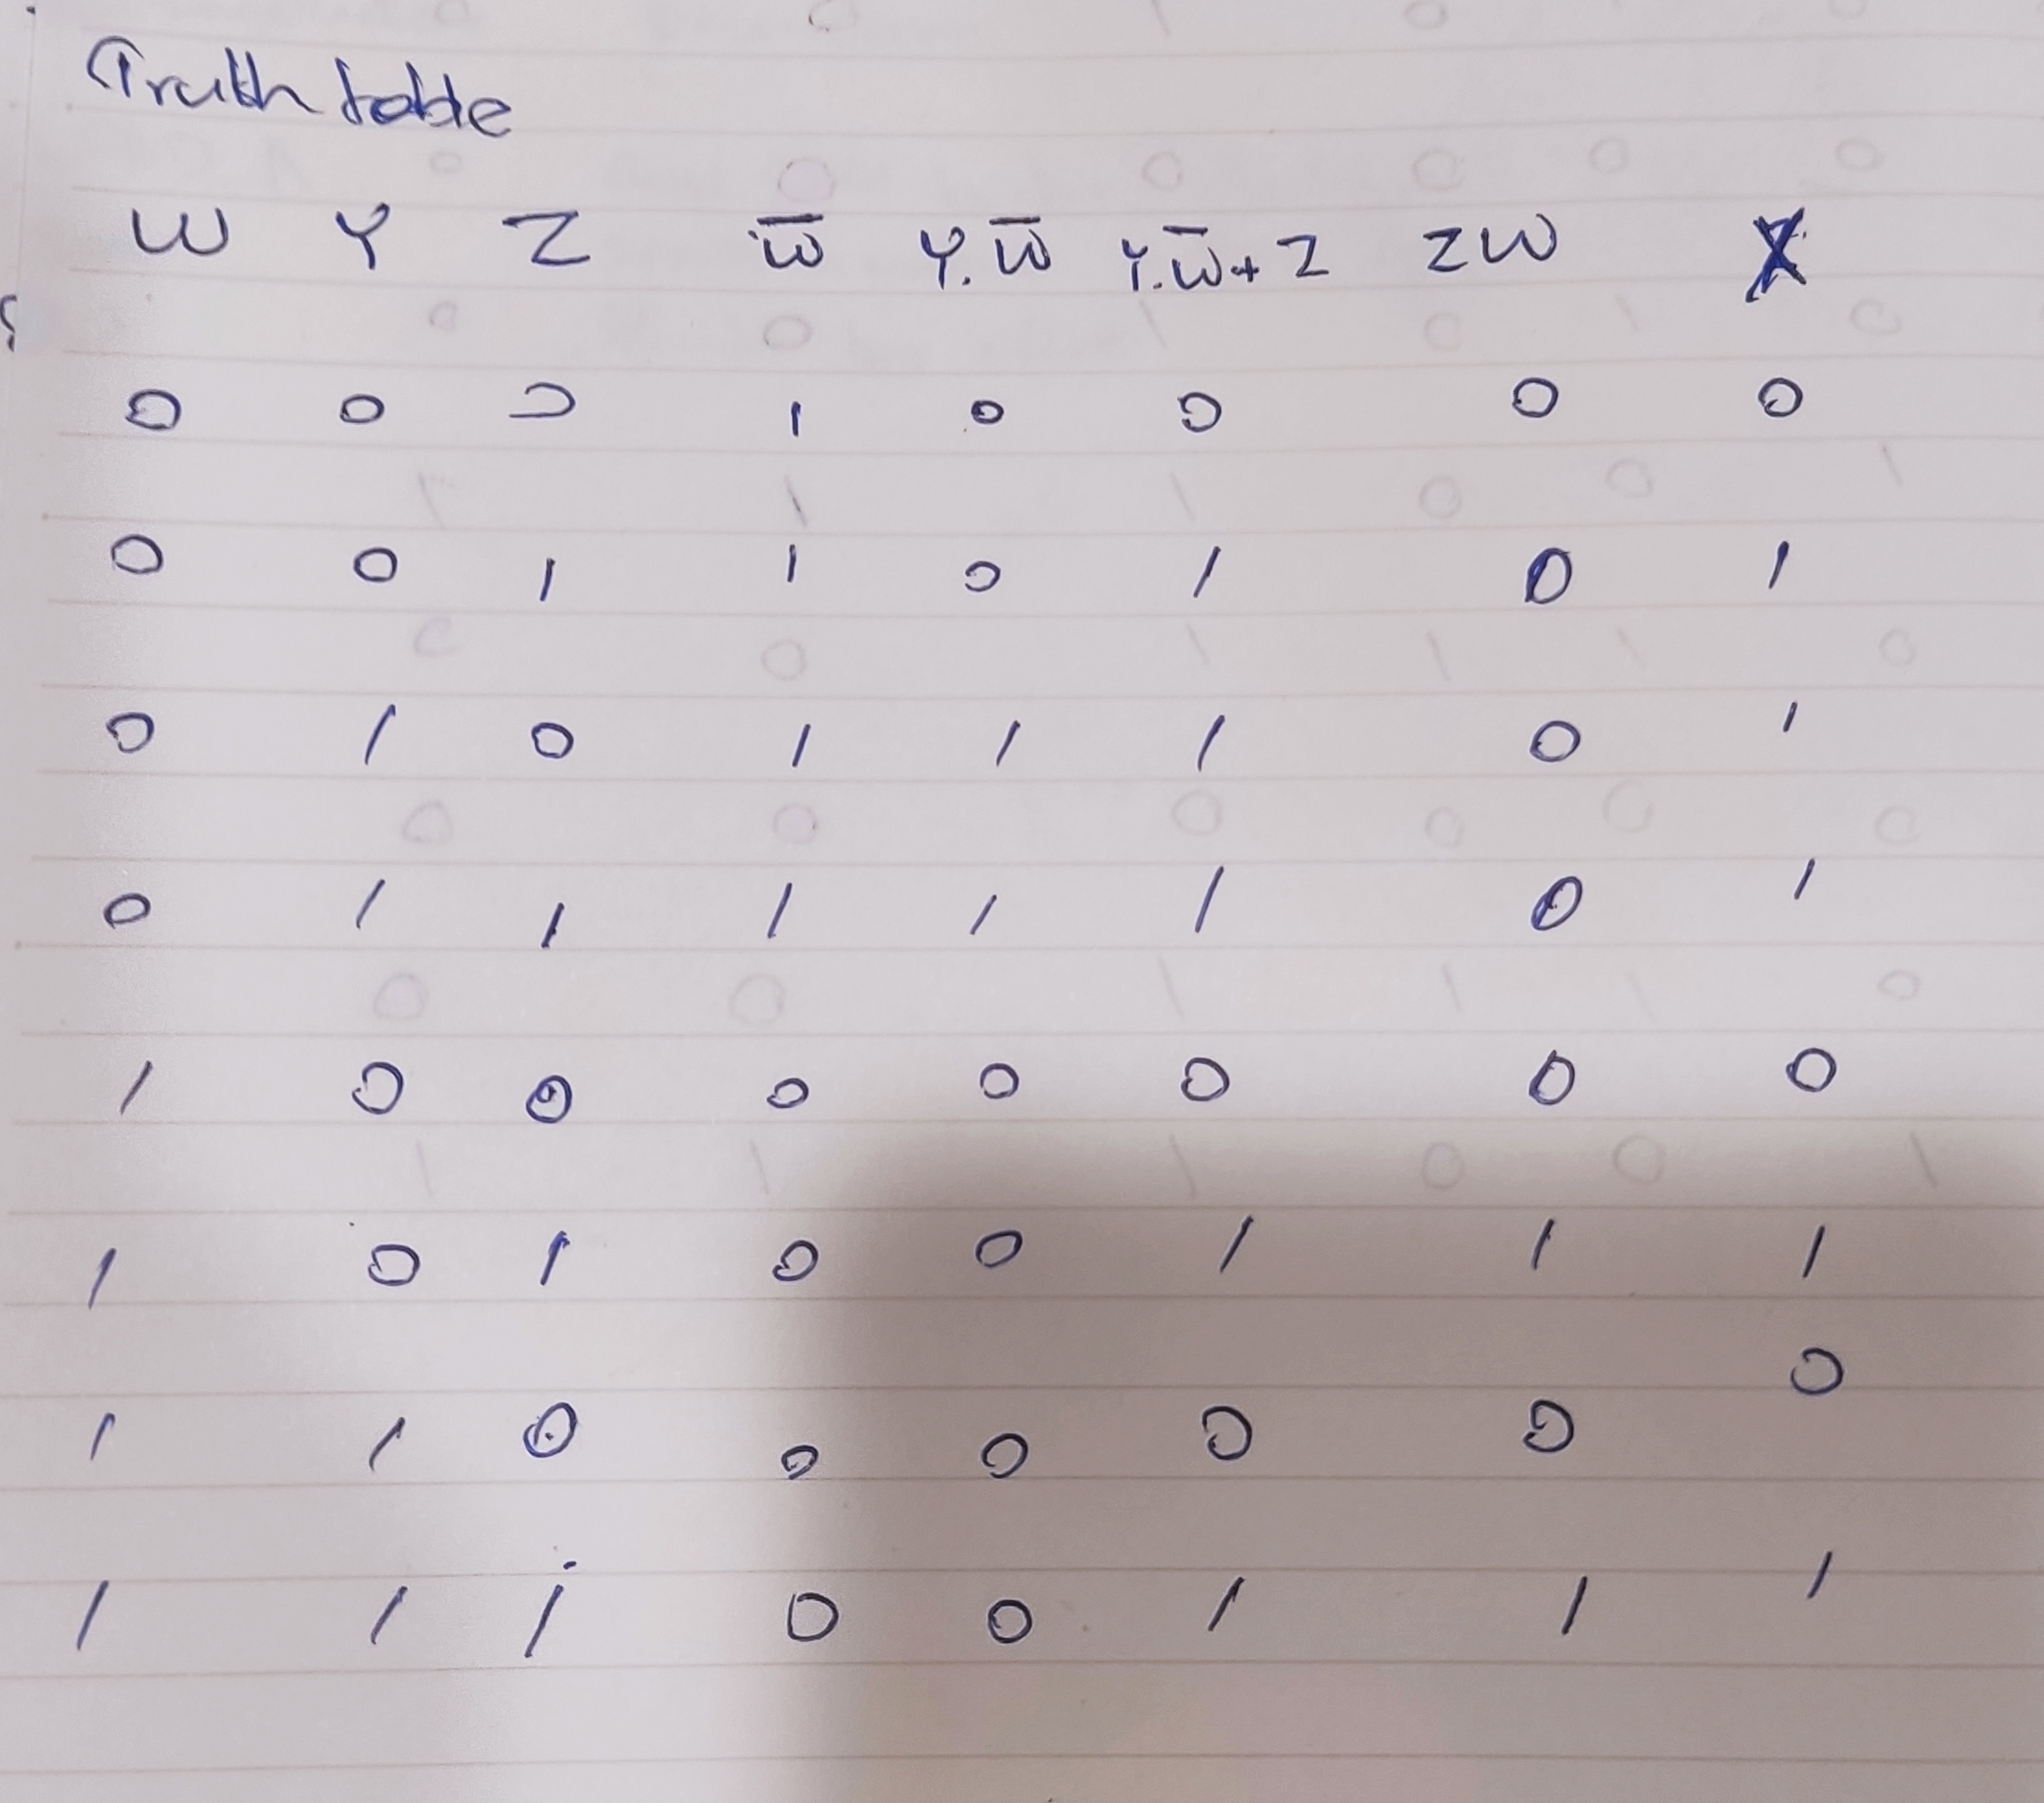 Truth table
W Y Z W̅ Y.W̅ Y.W̅+Z ZW X
0 0 0 1 0 0 0 0
0 0 1 1 0 1 0 1
0 1 0 1 1 1 0 1
0 1 1 1 1 1 0 1
1 0 0 0 0 0 0 0
1 0 1 0 0 1 1 1
1 1 0 0 0 0 0 0
1 1 1 0 0 1 1 1